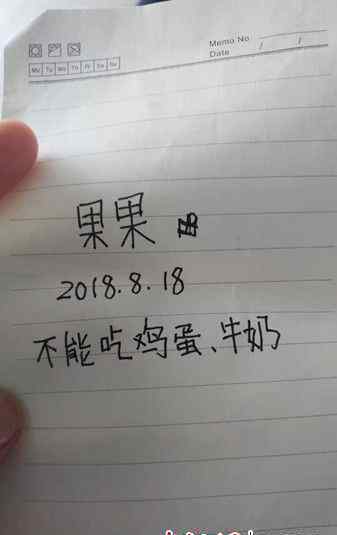 Memo No
Date / /
Mo Tu We Th Fr Sa Su
果果
2018.8.18
不能吃鸡蛋、牛奶